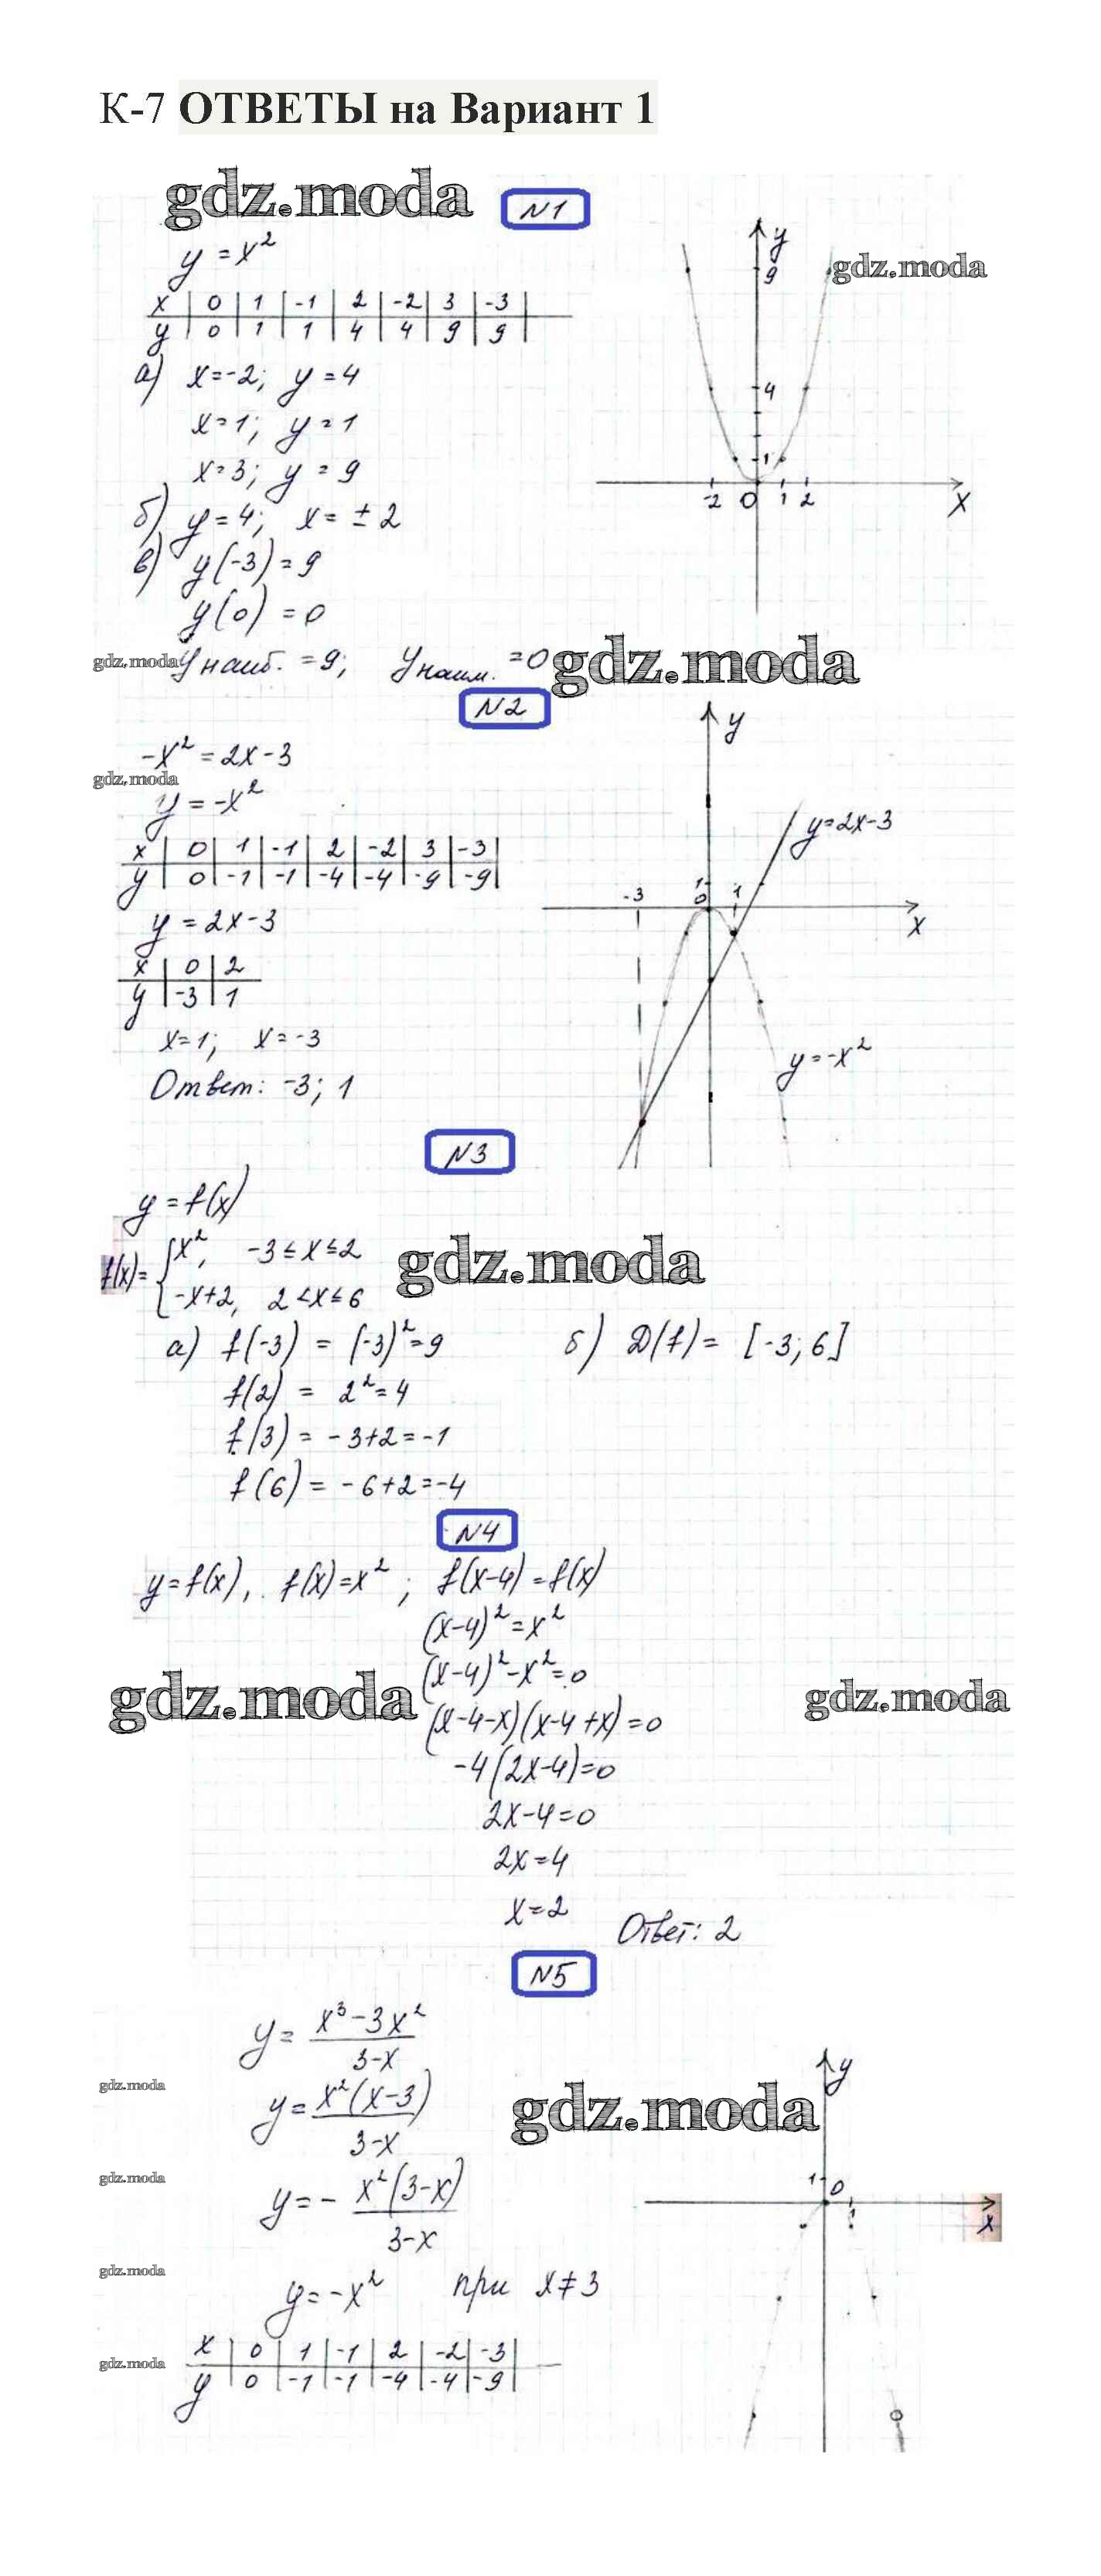 К-7 ОТВЕТЫ на Вариант 1
gdz.moda
N1
y = x²
x | 0 | 1 | -1 | 2 | -2 | 3 | -3
y | 0 | 1 | 1 | 4 | 4 | 9 | 9
y
9
gdz.moda
4
1
-2 0 1 2
x
а) x=-2; y=4
x=1; y=1
x=3; y=9
б) y=4; x=±2
в) y(-3)=9
y(0)=0
gdz.moda
y наиб. =9; y наим. =0
gdz.moda
N2
-x² = 2x-3
gdz.moda
y = -x²
x | 0 | 1 | -1 | 2 | -2 | 3 | -3
y | 0 | -1 | -1 | -4 | -4 | -9 | -9
y = 2x-3
x | 0 | 2
y | -3 | 1
x=1; x=-3
Ответ: -3; 1
y
y=2x-3
-3 1 0 1
x
y=-x²
N3
y = f(x)
f(x)= { x², -3≤x≤2
-x+2, 2<x≤6
gdz.moda
а) f(-3) = (-3)²=9 б) D(f)= [-3;6]
f(2) = 2²=4
f(3) = -3+2=-1
f(6) = -6+2=-4
N4
y=f(x), f(x)=x²; f(x-4)=f(x)
(x-4)²=x²
(x-4)²-x²=0
gdz.moda
gdz.moda
(x-4-x)(x-4+x)=0
-4(2x-4)=0
2x-4=0
2x=4
x=2
Ответ: 2
N5
y= x³-3x² / 3-x
gdz.moda
y= x²(x-3) / 3-x
gdz.moda
gdz.moda
y=- x²(3-x) / 3-x
gdz.moda
y=-x² при x≠3
gdz.moda
x | 0 | 1 | -1 | 2 | -2 | -3
y | 0 | -1 | -1 | -4 | -4 | -9
y
1 0
1 x